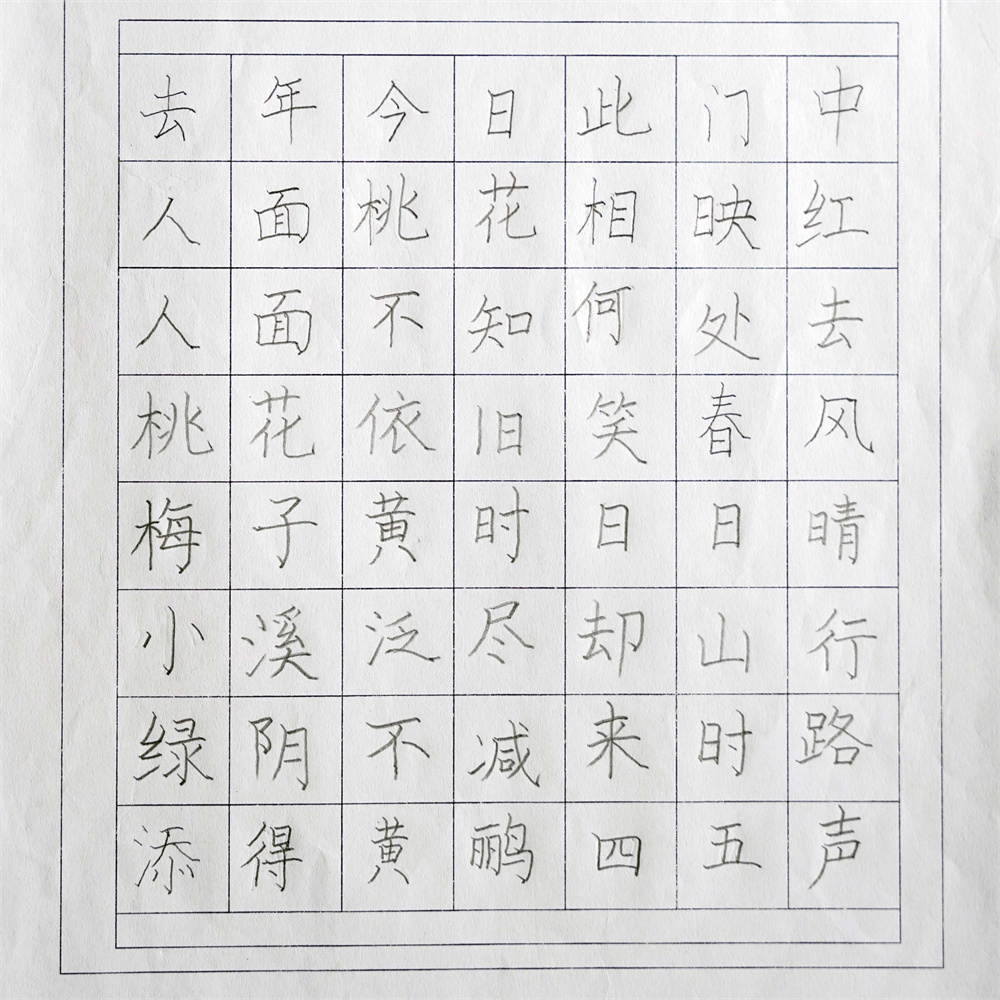 去年今日此门中
人面桃花相映红
人面不知何处去
桃花依旧笑春风
梅子黄时日日晴
小溪泛尽却山行
绿阴不减来时路
添得黄鹂四五声